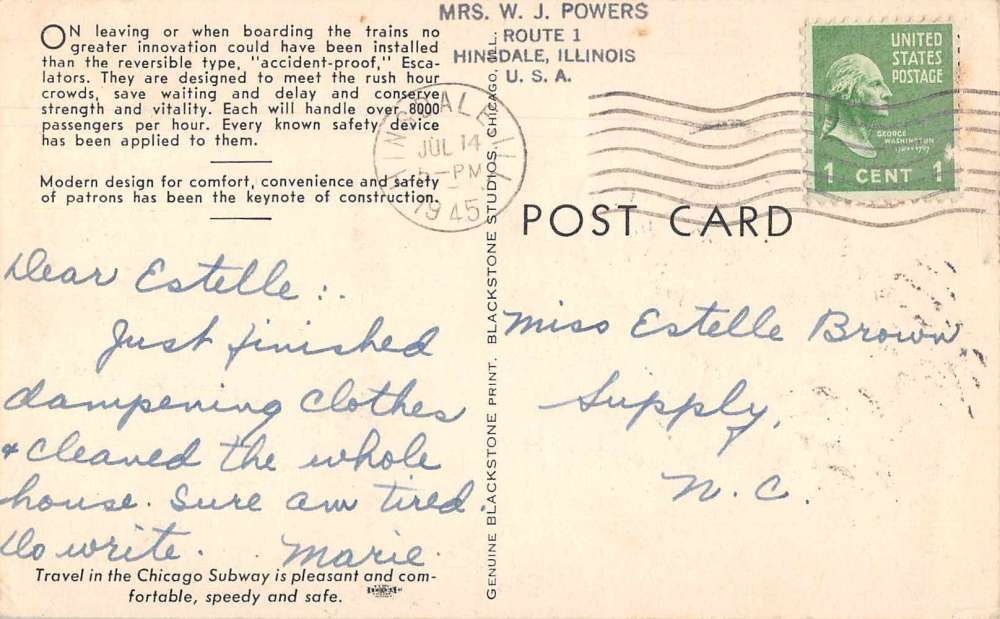 ON leaving or when boarding the trains no
greater innovation could have been installed
than the reversible type, "accident-proof," Esca-
lators. They are designed to meet the rush hour
crowds, save waiting and delay and conserve
strength and vitality. Each will handle over 8000
passengers per hour. Every known safety device
has been applied to them.
Modern design for comfort, convenience and safety
of patrons has been the keynote of construction.
Dear Estelle:.
Just finished
dampening clothes
& cleaned the whole
house. Sure am tired.
Do write. Marie.
Travel in the Chicago Subway is pleasant and com-
fortable, speedy and safe.
GENUINE BLACKSTONE PRINT. BLACKSTONE STUDIOS. CHICAGO, ILL.
MRS. W. J. POWERS
ROUTE 1
HINSDALE, ILLINOIS
U. S. A.
HINSDALE ILL
JUL 14
5-PM
1945
UNITED
STATES
POSTAGE
GEORGE
WASHINGTON
1789-1797
1 CENT 1
POST CARD
Miss Estelle Brown
Supply,
N. C.